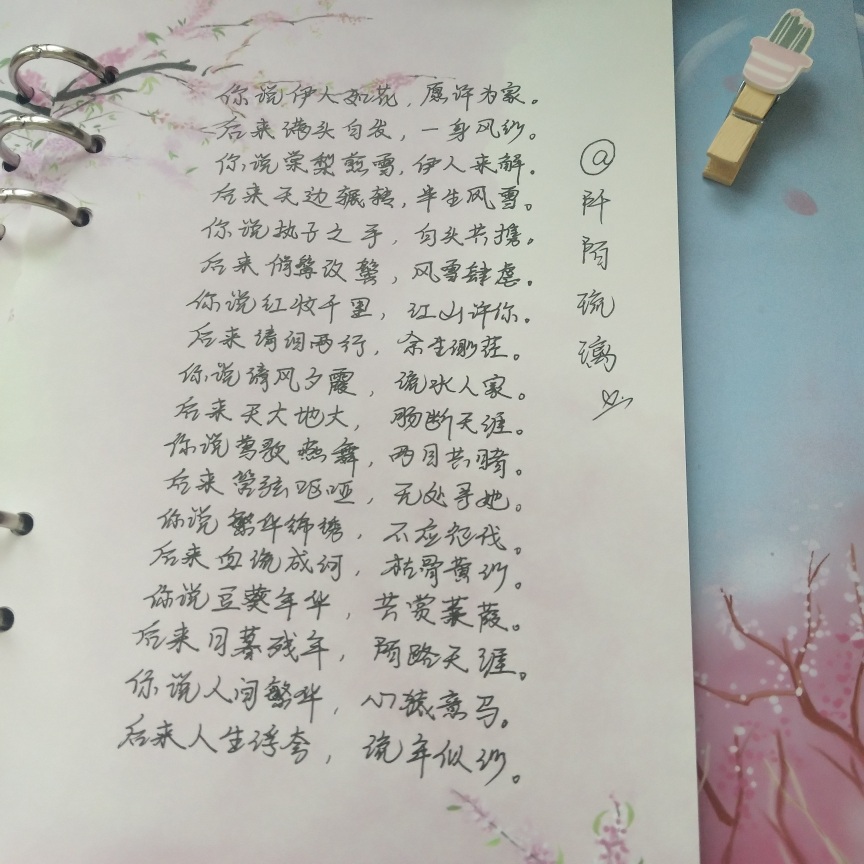 你说伊人如花，愿许为家。
后来满头白发，一身风沙。
你说棠梨煎雪，伊人来解。
后来天边辗转，半生风雪。
你说执子之手，白头共携。
后来倚髻改鬓，风雪肆虐。
你说红妆千里，江山许你。
后来清泪两行，余生谢荏。
你说清风夕霞，流水人家。
后来天大地大，肠断天涯。
你说莺歌燕舞，两目共睹。
后来管弦呕哑，无处寻她。
你说繁华锦绣，不应征伐。
后来血流成河，枯骨黄沙。
你说豆蔻年华，共赏蒹葭。
后来日暮残年，陌路天涯。
你说人间繁华，心猿意马。
后来人生浮夸，流年似沙。
@阡陌琉璃